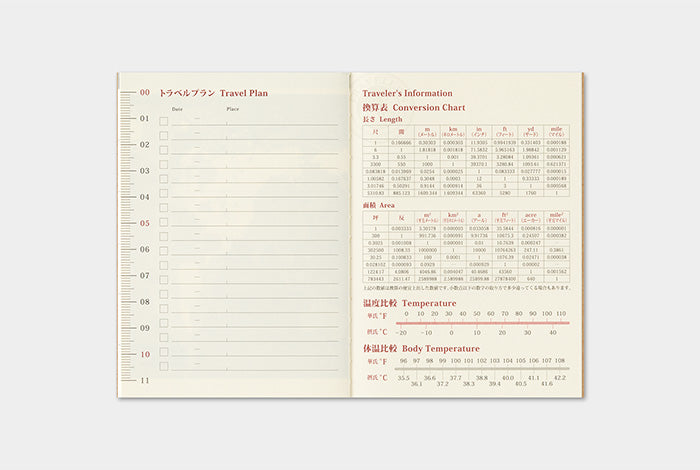 トラベルプラン Travel Plan
Date Place
00
01
02
03
04
05
06
07
08
09
10
11
Traveler's Information
換算表 Conversion Chart
長さ Length
尺 間 m km in ft yd mile
(メートル) (キロメートル) (インチ) (フィート) (ヤード) (マイル)
1 0.166666 0.30303 0.000303 11.9305 0.9941939 0.331403 0.000188
6 1 1.81818 0.001818 71.5832 5.965163 1.98842 0.001129
3.3 0.55 1 0.001 39.3701 3.28084 1.09361 0.000621
3300 550 1000 1 39370.1 3280.84 1093.61 0.621371
0.083818 0.013969 0.0254 0.000025 1 0.083333 0.027777 0.000015
1.00582 0.167637 0.3048 0.0003 12 1 0.33333 0.000189
3.01746 0.50291 0.9144 0.000914 36 3 1 0.000568
5310.83 885.123 1609.344 1.609344 63360 5280 1760 1
面積 Area
坪 反 m² km² a ft² acre mile²
(平方メートル) (平方キロメートル) (アール) (平方フィート) (エーカー) (平方マイル)
1 0.003333 3.30578 0.000003 0.033058 35.5844 0.000816 0.000001
300 1 991.736 0.000991 9.91736 10675.3 0.24507 0.000382
0.3025 0.001008 1 0.000001 0.01 10.7639 0.000247
302500 1008.33 1000000 1 10000 10763263 247.11 0.3861
30.25 0.100833 100 0.0001 1 1076.39 0.02471 0.000038
0.028102 0.000093 0.0929 0.000929 1 0.00002
1224.17 4.0806 4046.86 0.004047 40.4686 43560 1 0.001562
783443 2611.47 2589988 2.589988 25899.88 27878400 640 1
上記の数値は換算の便宜上出した数値です。小数点以下の数字の取り方で多少違ってくる場合もあります。
温度比較 Temperature
華氏 °F 0 10 20 30 40 50 60 70 80 90 100 110
摂氏 °C -20 -10 0 10 20 30 40
体温比較 Body Temperature
華氏 °F 96 97 98 99 100 101 102 103 104 105 106 107 108
摂氏 °C 35.5 36.6 37.7 38.8 40.0 41.1 42.2
36.1 37.2 38.3 39.4 40.5 41.6